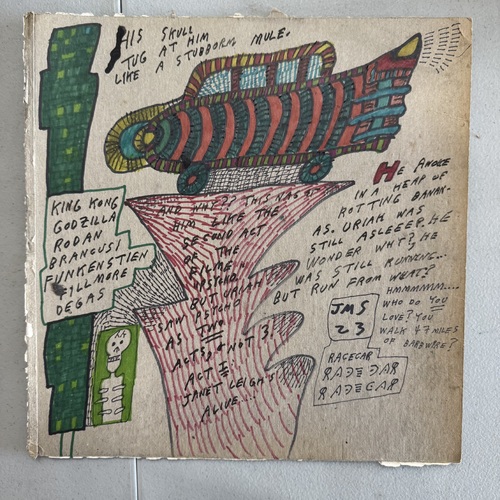 HIS SKULL
TUG AT HIM
LIKE A STUBBORN MULE.
KING KONG
GODZILLA
RODAN
BRANCUSI
FUNKENSTIEN
FILLMORE
DEGAS
AND WHY?? THIS WAS TO
HIM LIKE THE
SECOND ACT
OF THE
FILM
PSYCHO.
BUT URIAH
SAW PSYCHO
AS TWO
ACTS, & NOT 3.
ACT I =
JANET LEIGH'S
ALIVE...
HE AWOKE
IN A HEAP OF
ROTTING BANAN-
AS. URIAH WAS
STILL ASLEEEP. HE
WONDER WHY?, HE
WAS STILL RUNNING...
BUT RUN FROM WHAT?
HMMMMMM...
WHO DO YOU
LOVE? YOU
WALK 47 MILES
OF BARBWIRE?
JMS
23
RACECAR